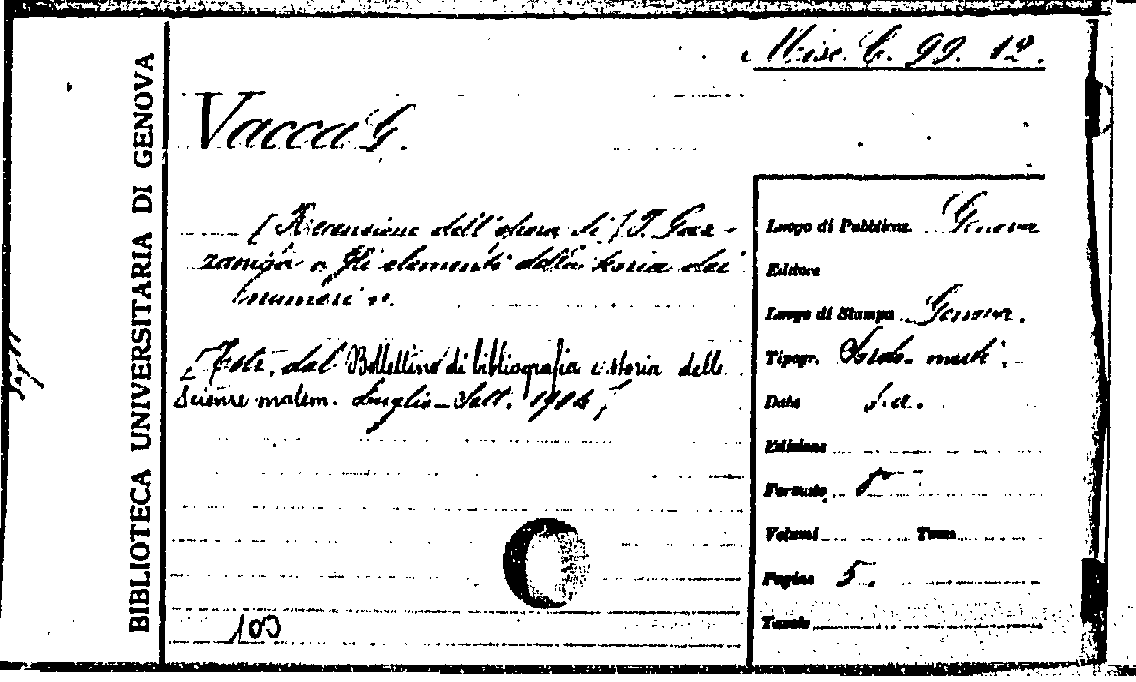 Misc. C. 99. 12.
BIBLIOTECA UNIVERSITARIA DI GENOVA
Vacca G.
(Recensione dell'opera di) T. Gaz-
zaniga « Gli elementi della teoria dei
numeri ».
[Estr. dal Bollettino di bibliografia e storia delle
Scienze matem. Luglio-Sett. 1904]
103
Luogo di Pubblicaz. Genova
Editore
Luogo di Stampa Genova.
Tipogr.
Data s.a.
Edizione
Formato 8°
Volumi Tomo
Pagine 5.
Tavole